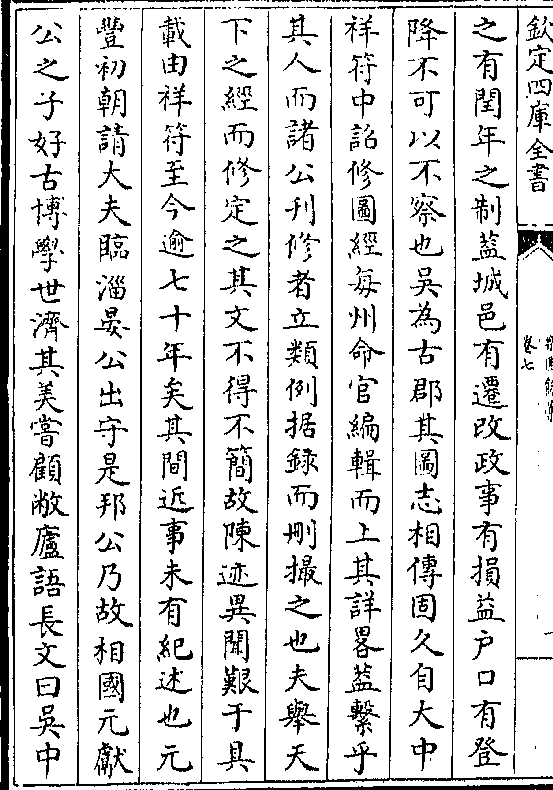 欽定四庫全書
卷七
之有閏年之制葢城邑有遷改政事有損益户口有登
降不可以不察也吳為古郡其圖志相傳固久自大中
祥符中詔修圖經每州命官編輯而上其詳畧葢繫乎
其人而諸公刋修者立類例据録而刪撮之也夫舉天
下之經而修定之其文不得不簡故陳迹異聞艱于具
載由祥符至今逾七十年矣其間近事未有紀述也元
豐初朝請大夫臨淄晏公出守是邦公乃故相國元獻
公之子好古博學世濟其美嘗顧敝廬語長文曰吳中